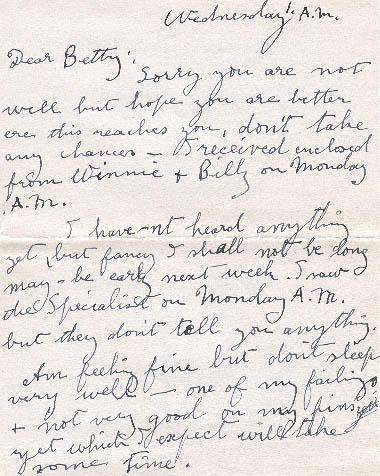 Wednesday! A.M.
Dear Betty:
Sorry you are not
well but hope you are better
ere this reaches you, don't take
any chances — I received enclosed
from Winnie + Billy on Monday
A.M.
I have-nt heard anything
yet, but fancy I shall not be long
may-be early next week. I saw
the Specialist on Monday A.M.
but they don't tell you anything.
Am feeling fine but don't sleep
very well — one of my failings
+ not very good on my pins
yet which I expect will take
some time.